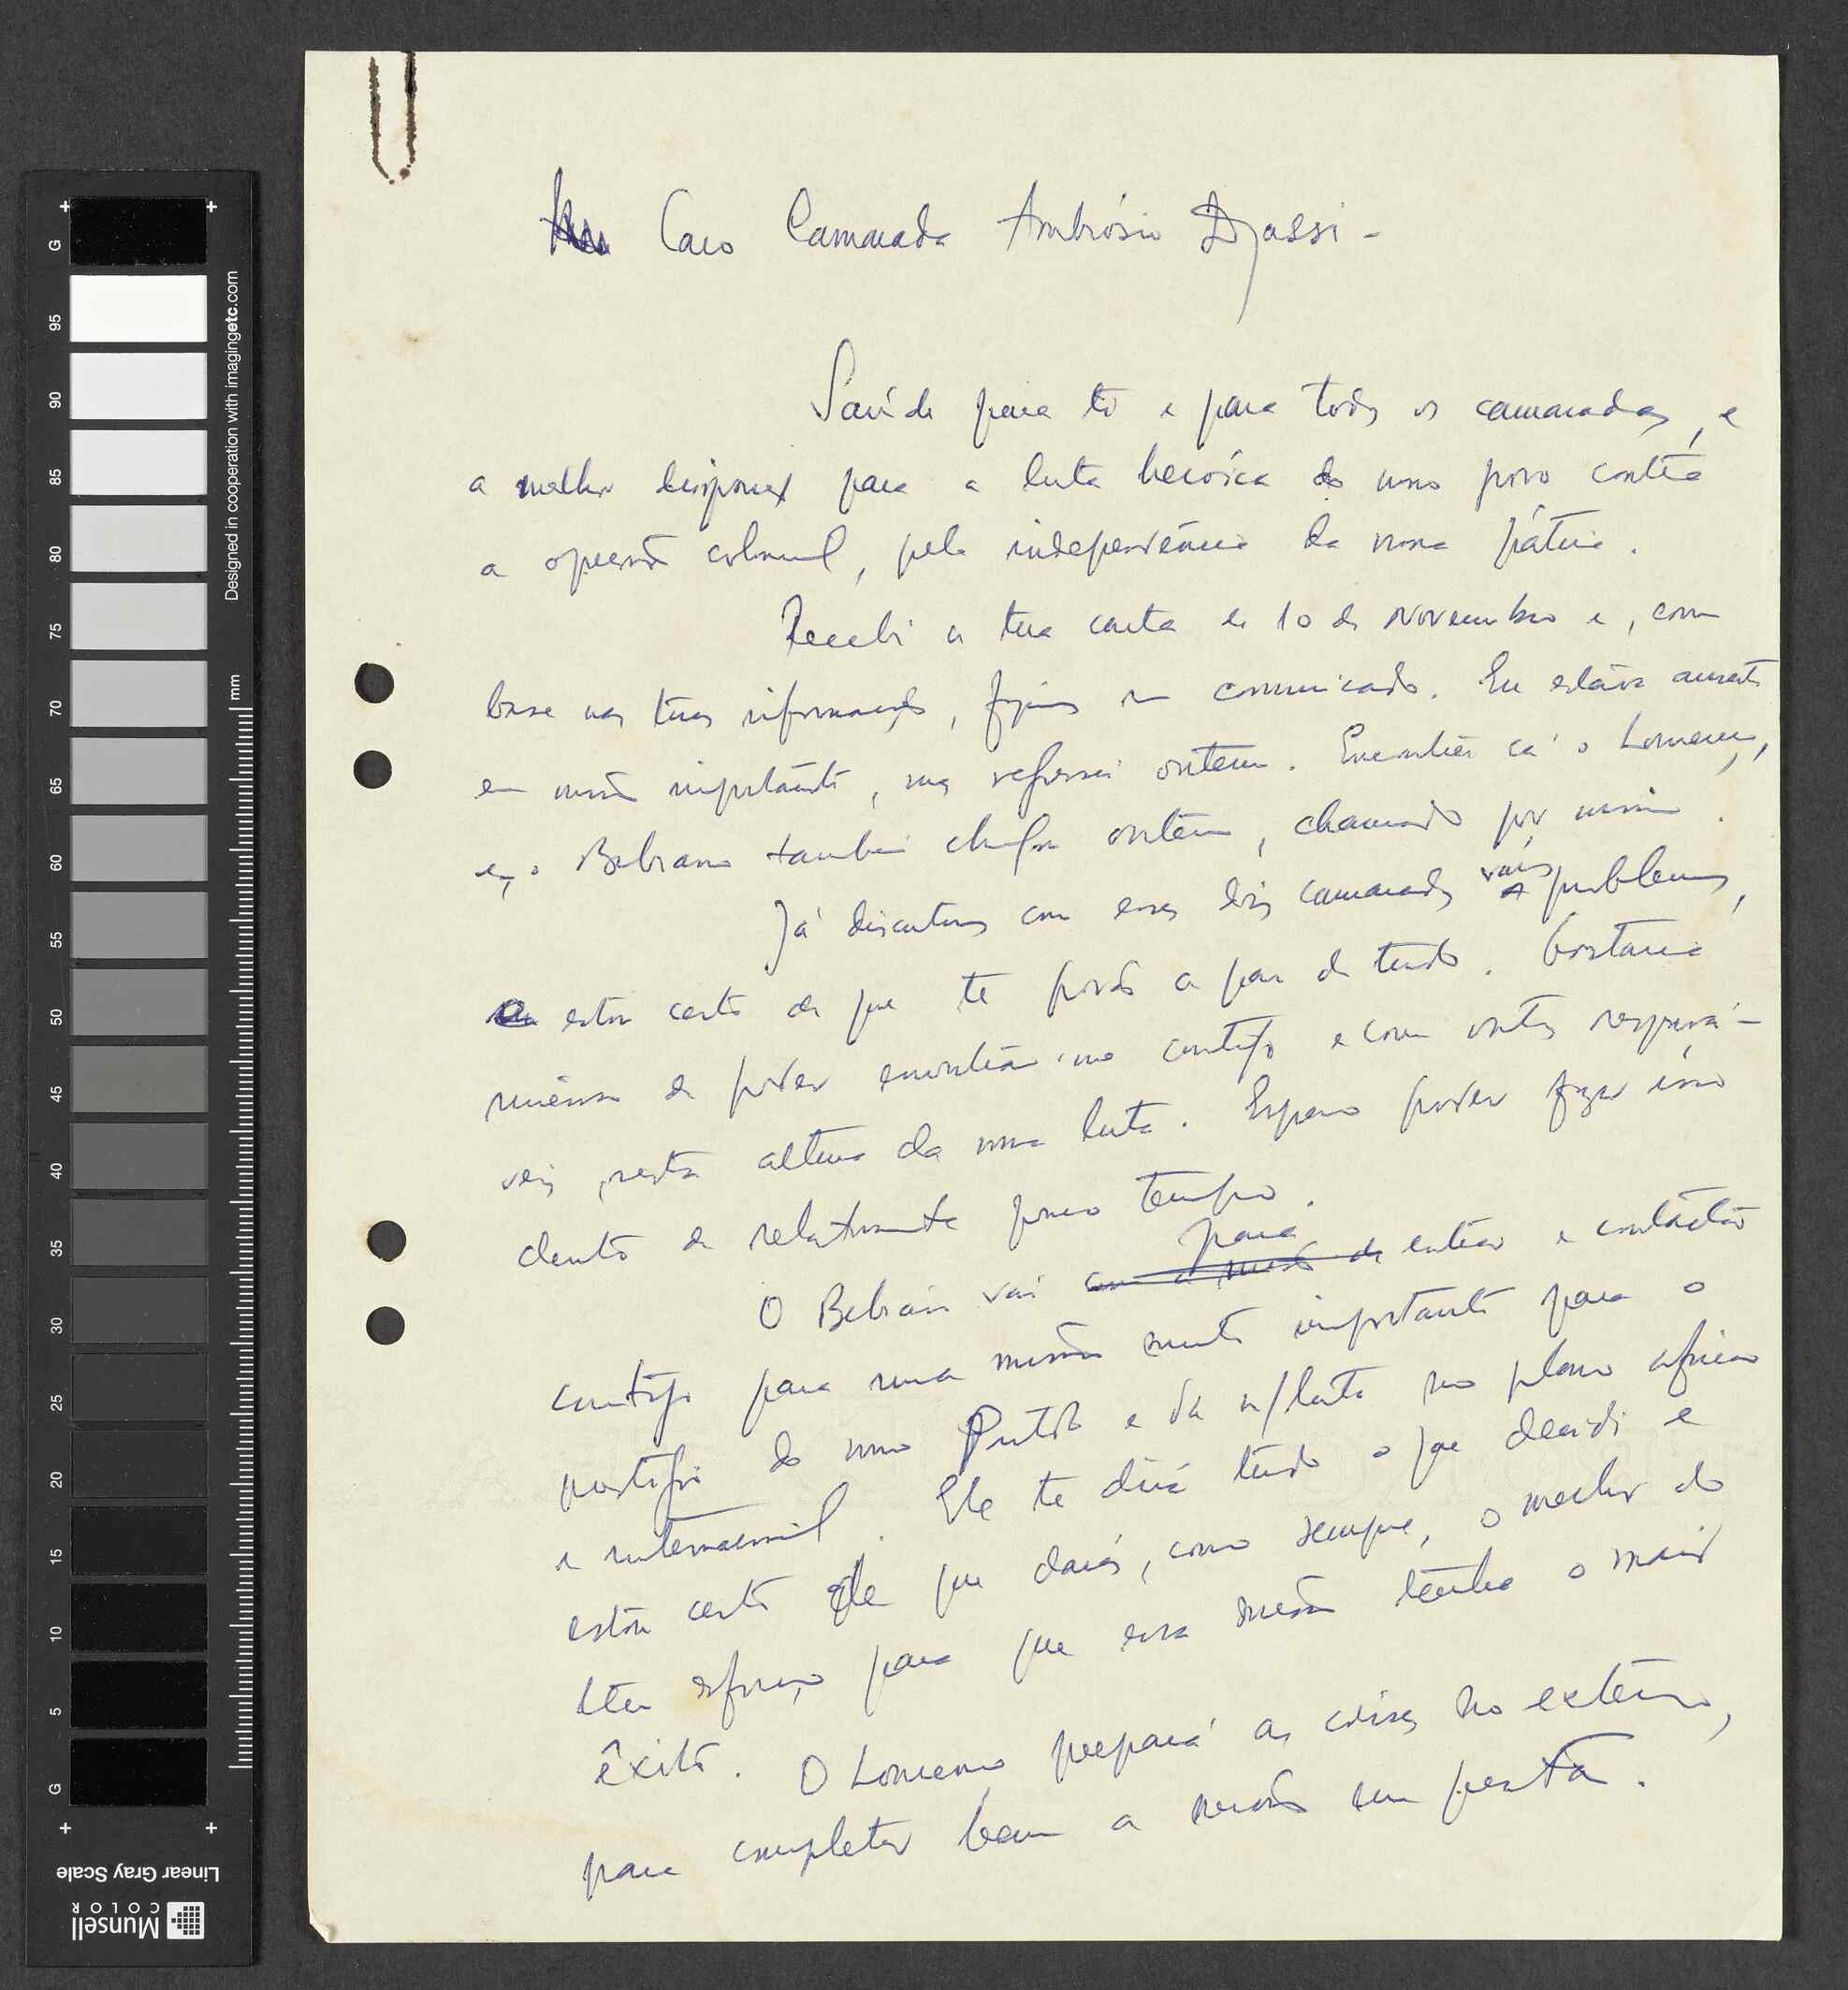 Caro Camarada Ambrósio Djassi -
Saúde para ti e para todos os camaradas, e
a melhor disposição para a luta heroica do nosso povo contra
a opressão colonial, pela independência da nossa pátria.
Recebi a tua carta de 10 de Novembro e, com
base nas tuas informações, fizemos um comunicado. Eu estava ausente
em missão importante, mas regressei ontem. Encontrei cá o Lourenço,
e o Bobrane também chegou ontem, chamado por mim.
Já discutimos com esses dois camaradas vários problemas,
estou certo de que te porão a par de tudo. Gostaria
imenso de poder encontrar-me contigo e com outros responsá-
veis, nesta altura da nossa luta. Espero poder fazer isso
dentro de relativamente pouco tempo.
O Bobrane vai com a missão de para entrar e contactar
contigo para uma missão muito importante para o
prestígio do nosso Partido e da n/luta no plano africano
e internacional. Ele te dirá tudo o que decidi e
estou certo de que darás, como sempre, o melhor do
teu esforço para que essa missão tenha o maior
êxito. O Lourenço preparará as coisas no exterior,
para completar bem a missão em questão.
Designed in cooperation with imagingetc.com
mm
G
95
90
85
80
75
70
65
60
55
50
45
40
35
30
25
20
15
10
5
G
Linear Gray Scale
Munsell
COLOR